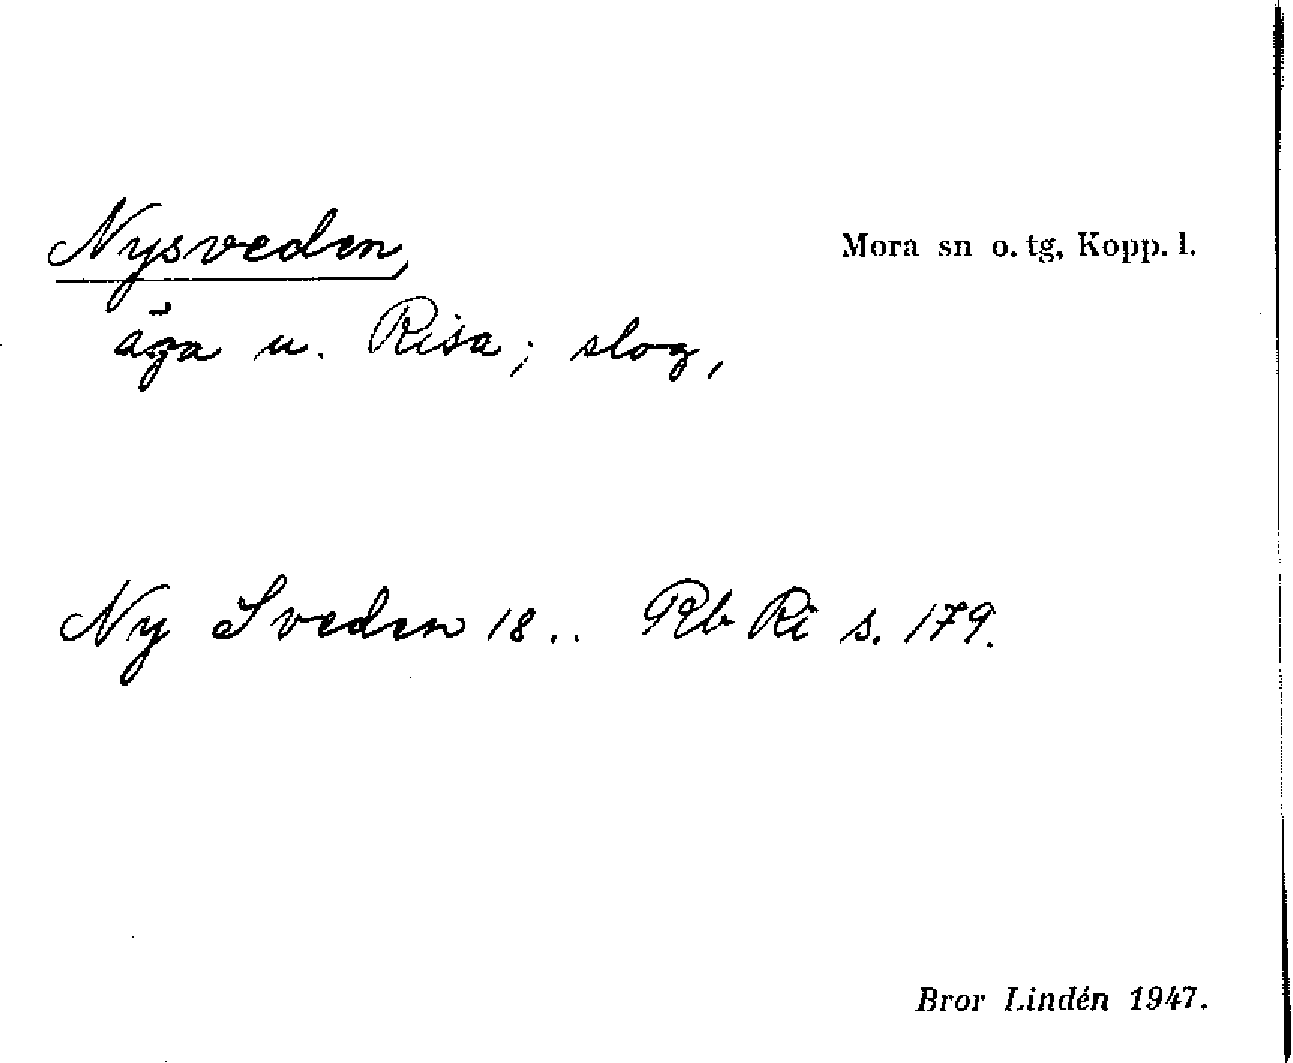 Nysveden, Mora sn o. tg, Kopp. l.
äga u. Risa; slog,
Ny Sveden 18.. Rb Ri s. 179.
Bror Lindén 1947.